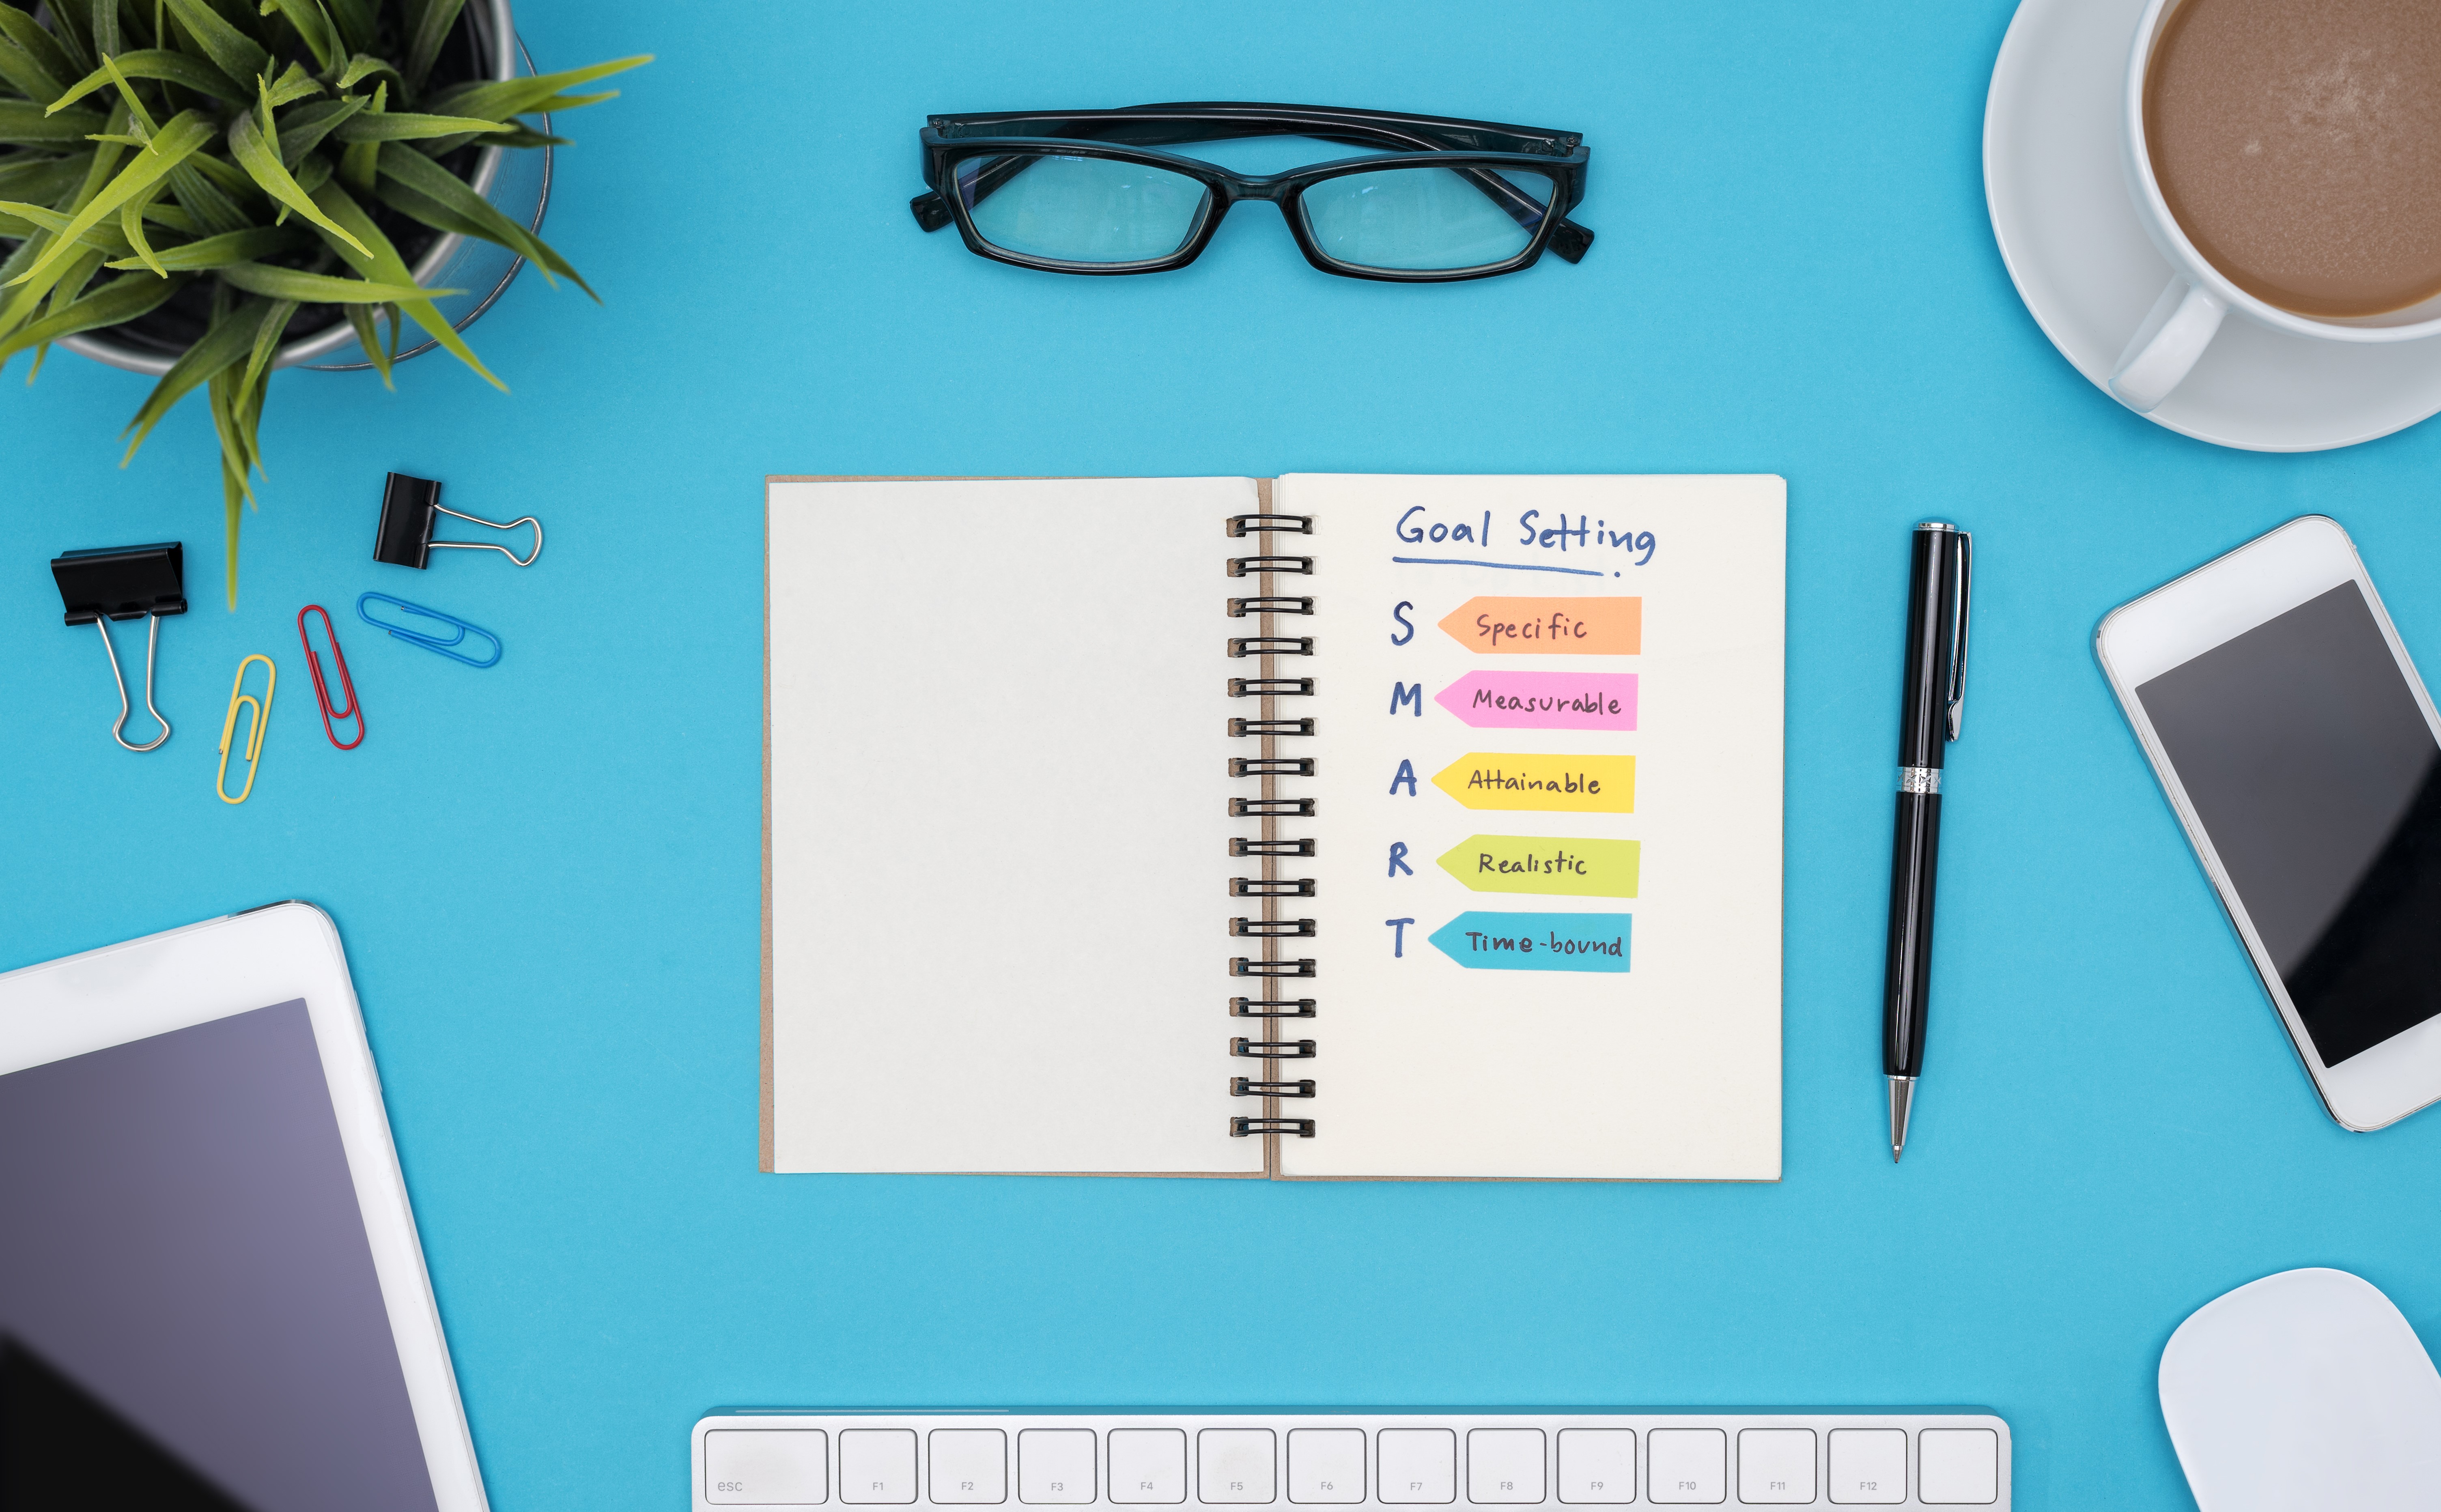 Goal Setting
S Specific
M Measurable
A Attainable
R Realistic
T Time-bound
esc F1 F2 F3 F4 F5 F6 F7 F8 F9 F10 F11 F12